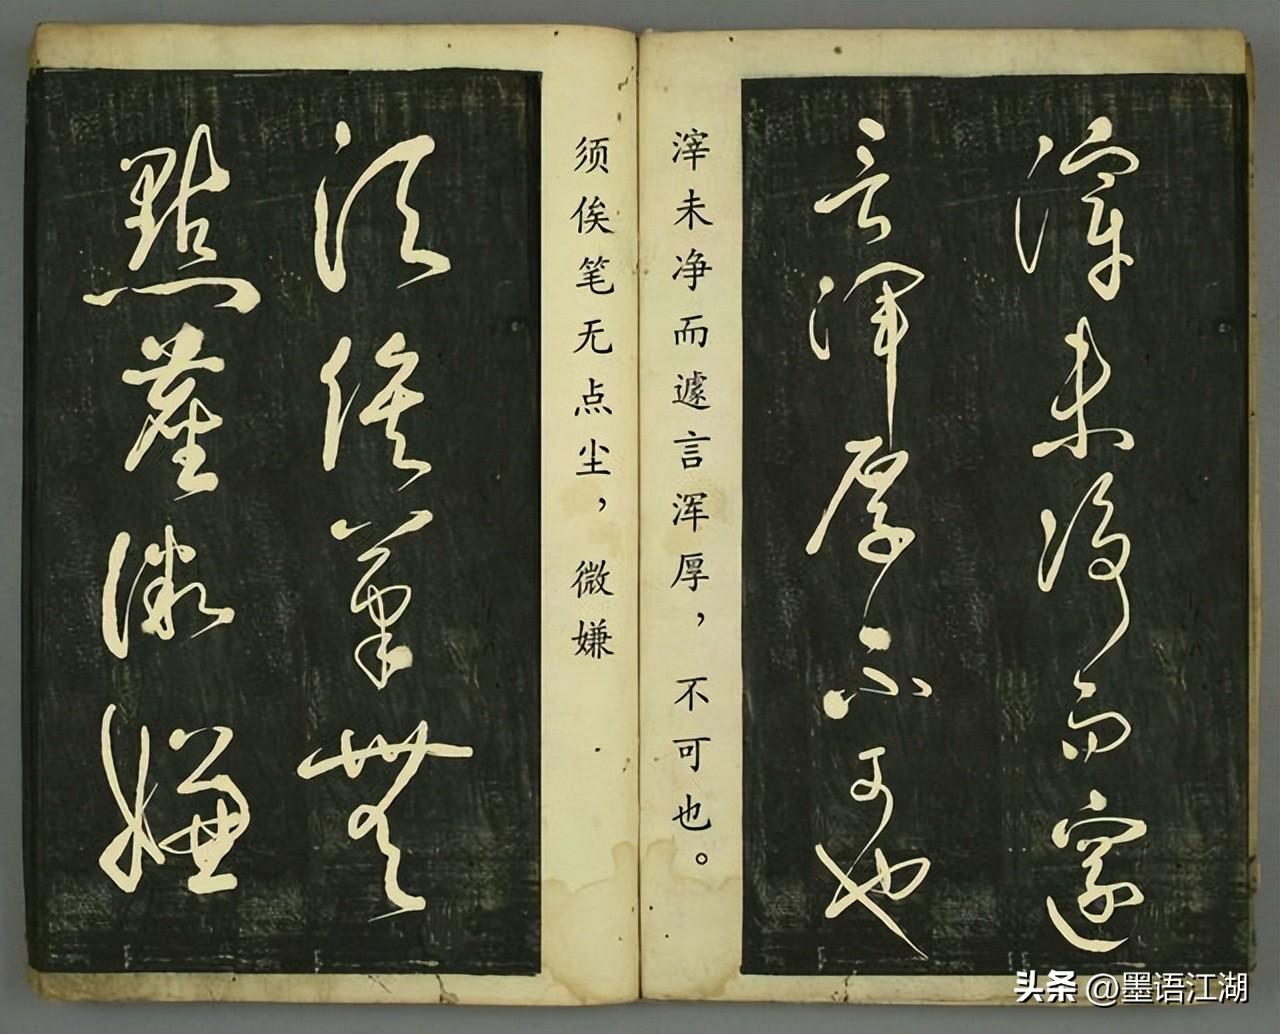 滓未净而遽
言浑厚不可也
滓未净而遽言浑厚，不可也。
须俟笔无点尘，微嫌
須俟筆無
點塵微嫌
头条 @墨语江湖